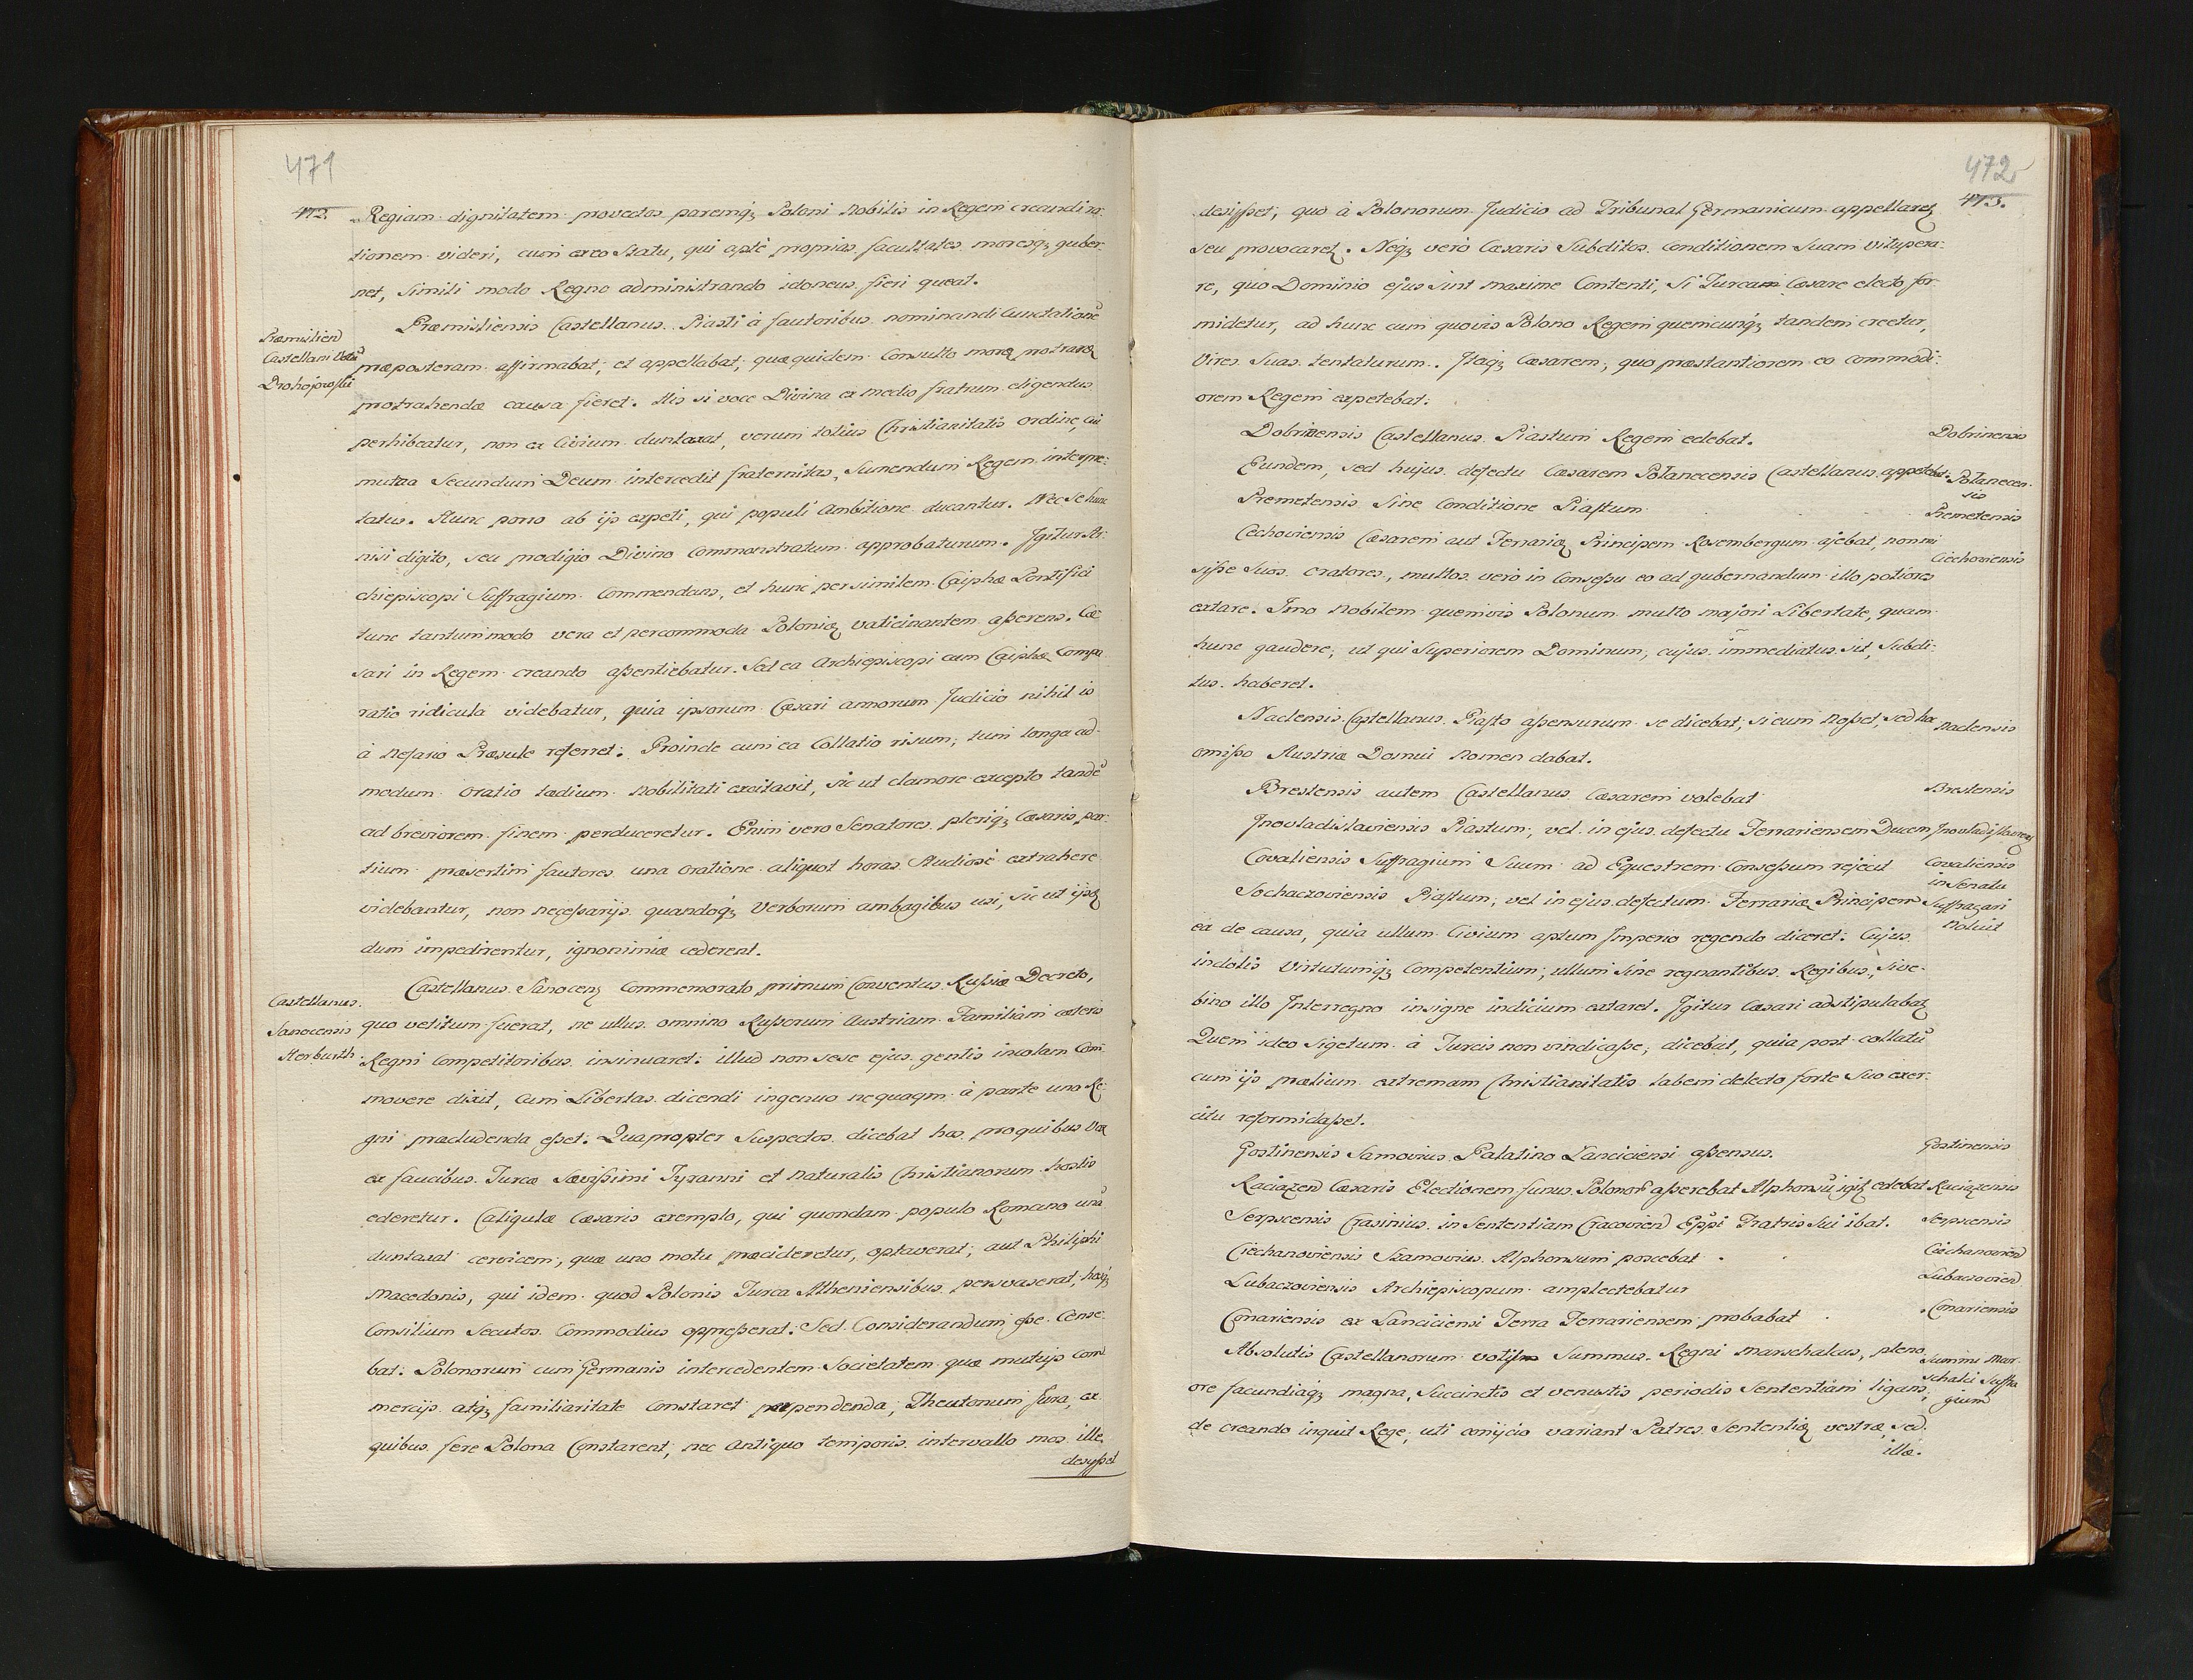 471
472.
Regiam dignitatem provectos paremq; Poloni Nobilis in Regem creandi ra:
tionem videri, cum ex eo Statu, qui aptè proprias facultates moresq; guber:
net, simili modo Regno administrando idoneus fieri queat.
Præmislien
Castellani Votu
Drohojowski
Præmisliensis Castellanus Piasti à fautoribus nominandi Cunctatione
præposteram affirmabat, et appellabat; quæ quidem Consulto moræ
protrahendæ causa fieret. His si voce Divina ex medio fratrum eligendus
perhibeatur, non ex Civium duntaxat, verum totius Christianitatis ordine, cui
mutua Secundum Deum intercedit fraternitas, Sumendum Regem interpre:
tatus. Hunc porro ab ijs expeti, qui populi Ambitione ducantur. Nec se hunc
nisi digito, seu prodigio Divino Commonstratum approbaturum. Igitur Ar:
chiepiscopi Suffragium Commendans, et hunc persimilem Caiphæ Pontifici
tunc tantummodo vera et percommoda Poloniæ vaticinantem asserens. Cæ
sari in Regem creando assentiebatur. Sed ea Archiepiscopi cum Caipha Compa
ratio ridicula videbatur, quia ipsorum Cæsari annorum Judicio nihil is
à nefario Præsule referret. Proinde cum ea Collatio risum, tum longa ad
modum oratio tædium Nobilitati excitavit, sic ut clamore excepto tande
ad breviorem finem perduceretur. Enim vero Senatores pleriq; Cæsaris par:
tium præsertim fautores una oratione aliquot horas Studiosè extrahere
videbantur, non necessarijs quandoq; Verborum ambagibus usi, sic ut
dum impedirentur, ignominiæ cederent.
Castellanus
Sanocensis
Herburth
Castellanus Sanocen Commemorato primum Conventus Russiæ Decreto,
quo vetitum fuerat, ne ullus omnino Russorum Austriam Familiam cæteris
Regni Competitoribus insinuaret: illud non sese ejus gentis incolam Com
movere dixit, cum Libertas dicendi ingenuo nequaqm à parte uno Re:
gni præcludenda esset. Quapropter Suspectos dicebat hos pro quibus
ex faucibus Turcæ Sævissimi Tyranni et naturalis Christianorum hostis
ederetur. Caligulæ Cæsaris exemplo, qui quondam populo Romano una
duntaxat cervicem, quæ uno motu præcideretur, optaverat; aut Philippi
Macedonis, qui idem quod Polonis Turca Atheniensibus persvaserat, hosq;
Consilium Secutos Commodius oppresserat. Sed Considerandum esse Cense
bat: Polonorum cum Germanis intercedentem Societatem quæ mutuis com
mercijs atq; familiaritate Constaret perpendenda; Theutonum Jura, ex
quibus fere Polona Constarent, nec Antiquo temporis intervallo mos ille
desijsset
472
473.
desijsset, quo à Polonorum Judicio ad Tribunal Germanicum appellaret
seu provocaret. Neq; verò Cæsaris Subditos Conditionem Suam vitupera:
re, quo Dominio ejus sint maxime Contenti, Si Turcam Cæsare electo for
midetur, ad hunc cum quovis Polono Regem quemcunq; tandem creetur,
Vires Suas tentaturum. Itaq; Cæsarem, quo præstantiorem eo Commodi:
orem Regem expetebat.
Dobrinensis Castellanus Piastum Regem edebat. Dobrinensis
Eundem, sed hujus defectu Cæsarem Polanecensis Castellanus appetebat. Polanecen
sis
Premetensis Sine Conditione Piastum Premetensis
Cechoviensis Cæsarem aut Ferrariæ Principem Rosembergum ajebat, non mi Ciechoviensis
sisse Suos oratores, multos verò in Consessu eo ad gubernandum illo potiores
extare. Imo Nobilem quemvis Polonum multo majori Libertate, quam
hunc gaudere, ut qui Superiorem Dominum, cujus immediatus sit, Subdi:
tus haberet.
Naclensis Castellanus Piasto assensurum se dicebat, si eum nosset, sed hoc Naclensis
omisso Austriæ Domui Nomen dabat.
Brestensis autem Castellanus Cæsarem volebat Brestensis
Inovladislaviensis Piastum, vel in ejus defectu Ferrariensem Ducem
Covaliensis Suffragium Suum ad Equestrem Consessum rejecit Covaliensis
in Senatu
Suffragari
Noluit
Sochaczoviensis Piastum, vel in ejus defectum Ferrariæ Principem
eâ de causa, quia ullum Civium aptum Imperio regendo diceret. Cujus
indolis Virtutumq; Competentium, ullum Sine regnantibus Regibus, Sive
bino illo Interregno insigne indicium extaret. Igitur Cæsari adstipulabat
Quem ideo Sigetum à Turcis non vindicasse, dicebat, quia post collatu
cum ijs prælium extremam Christianitatis labem deleto forte Suo exer:
citu reformidasset.
Gostinensis Samovius Palatino Lanciciensi assensus. Gostinensis
Raciazen Cæsaris Electionem funus Polonor asserebat Alphonsu igit edebat Raciązensis
Serpscensis Crasinius in Sententiam Cracovien Eppi Fratris Sui ibat. Serpscensis
Ciechanoviensis Szamovius Alphonsum poscebat. Ciechanovien
Lubaczoviensis Archiepiscopum amplectebatur Lubaczovien
Conariensis ex Lanciciensi Terra Ferrariensem probabat Conariensis
Absolutis Castellanorum votis Summus Regni Marschalcus, pleno Summi Mar
schalci Suffra
gium
ore facundiaq; magna, Succinctis et venustis periodis Sententiam ligans,
de creando inquit Rege, uti conijcio variant Patres Sententiæ vestræ, sed
illæ.